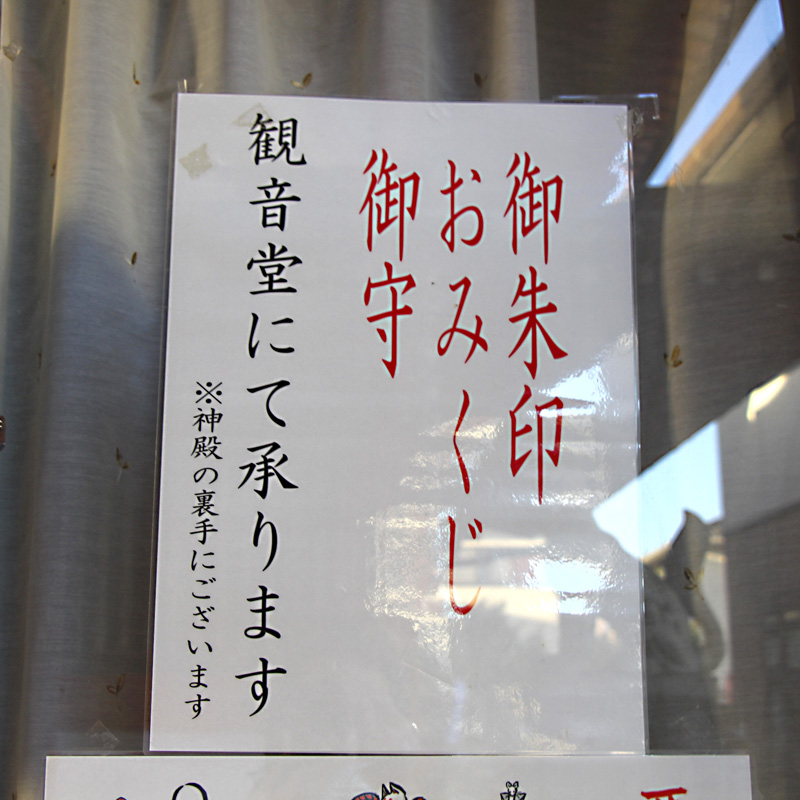 御朱印
おみくじ
御守
観音堂にて承ります
※神殿の裏手にございます